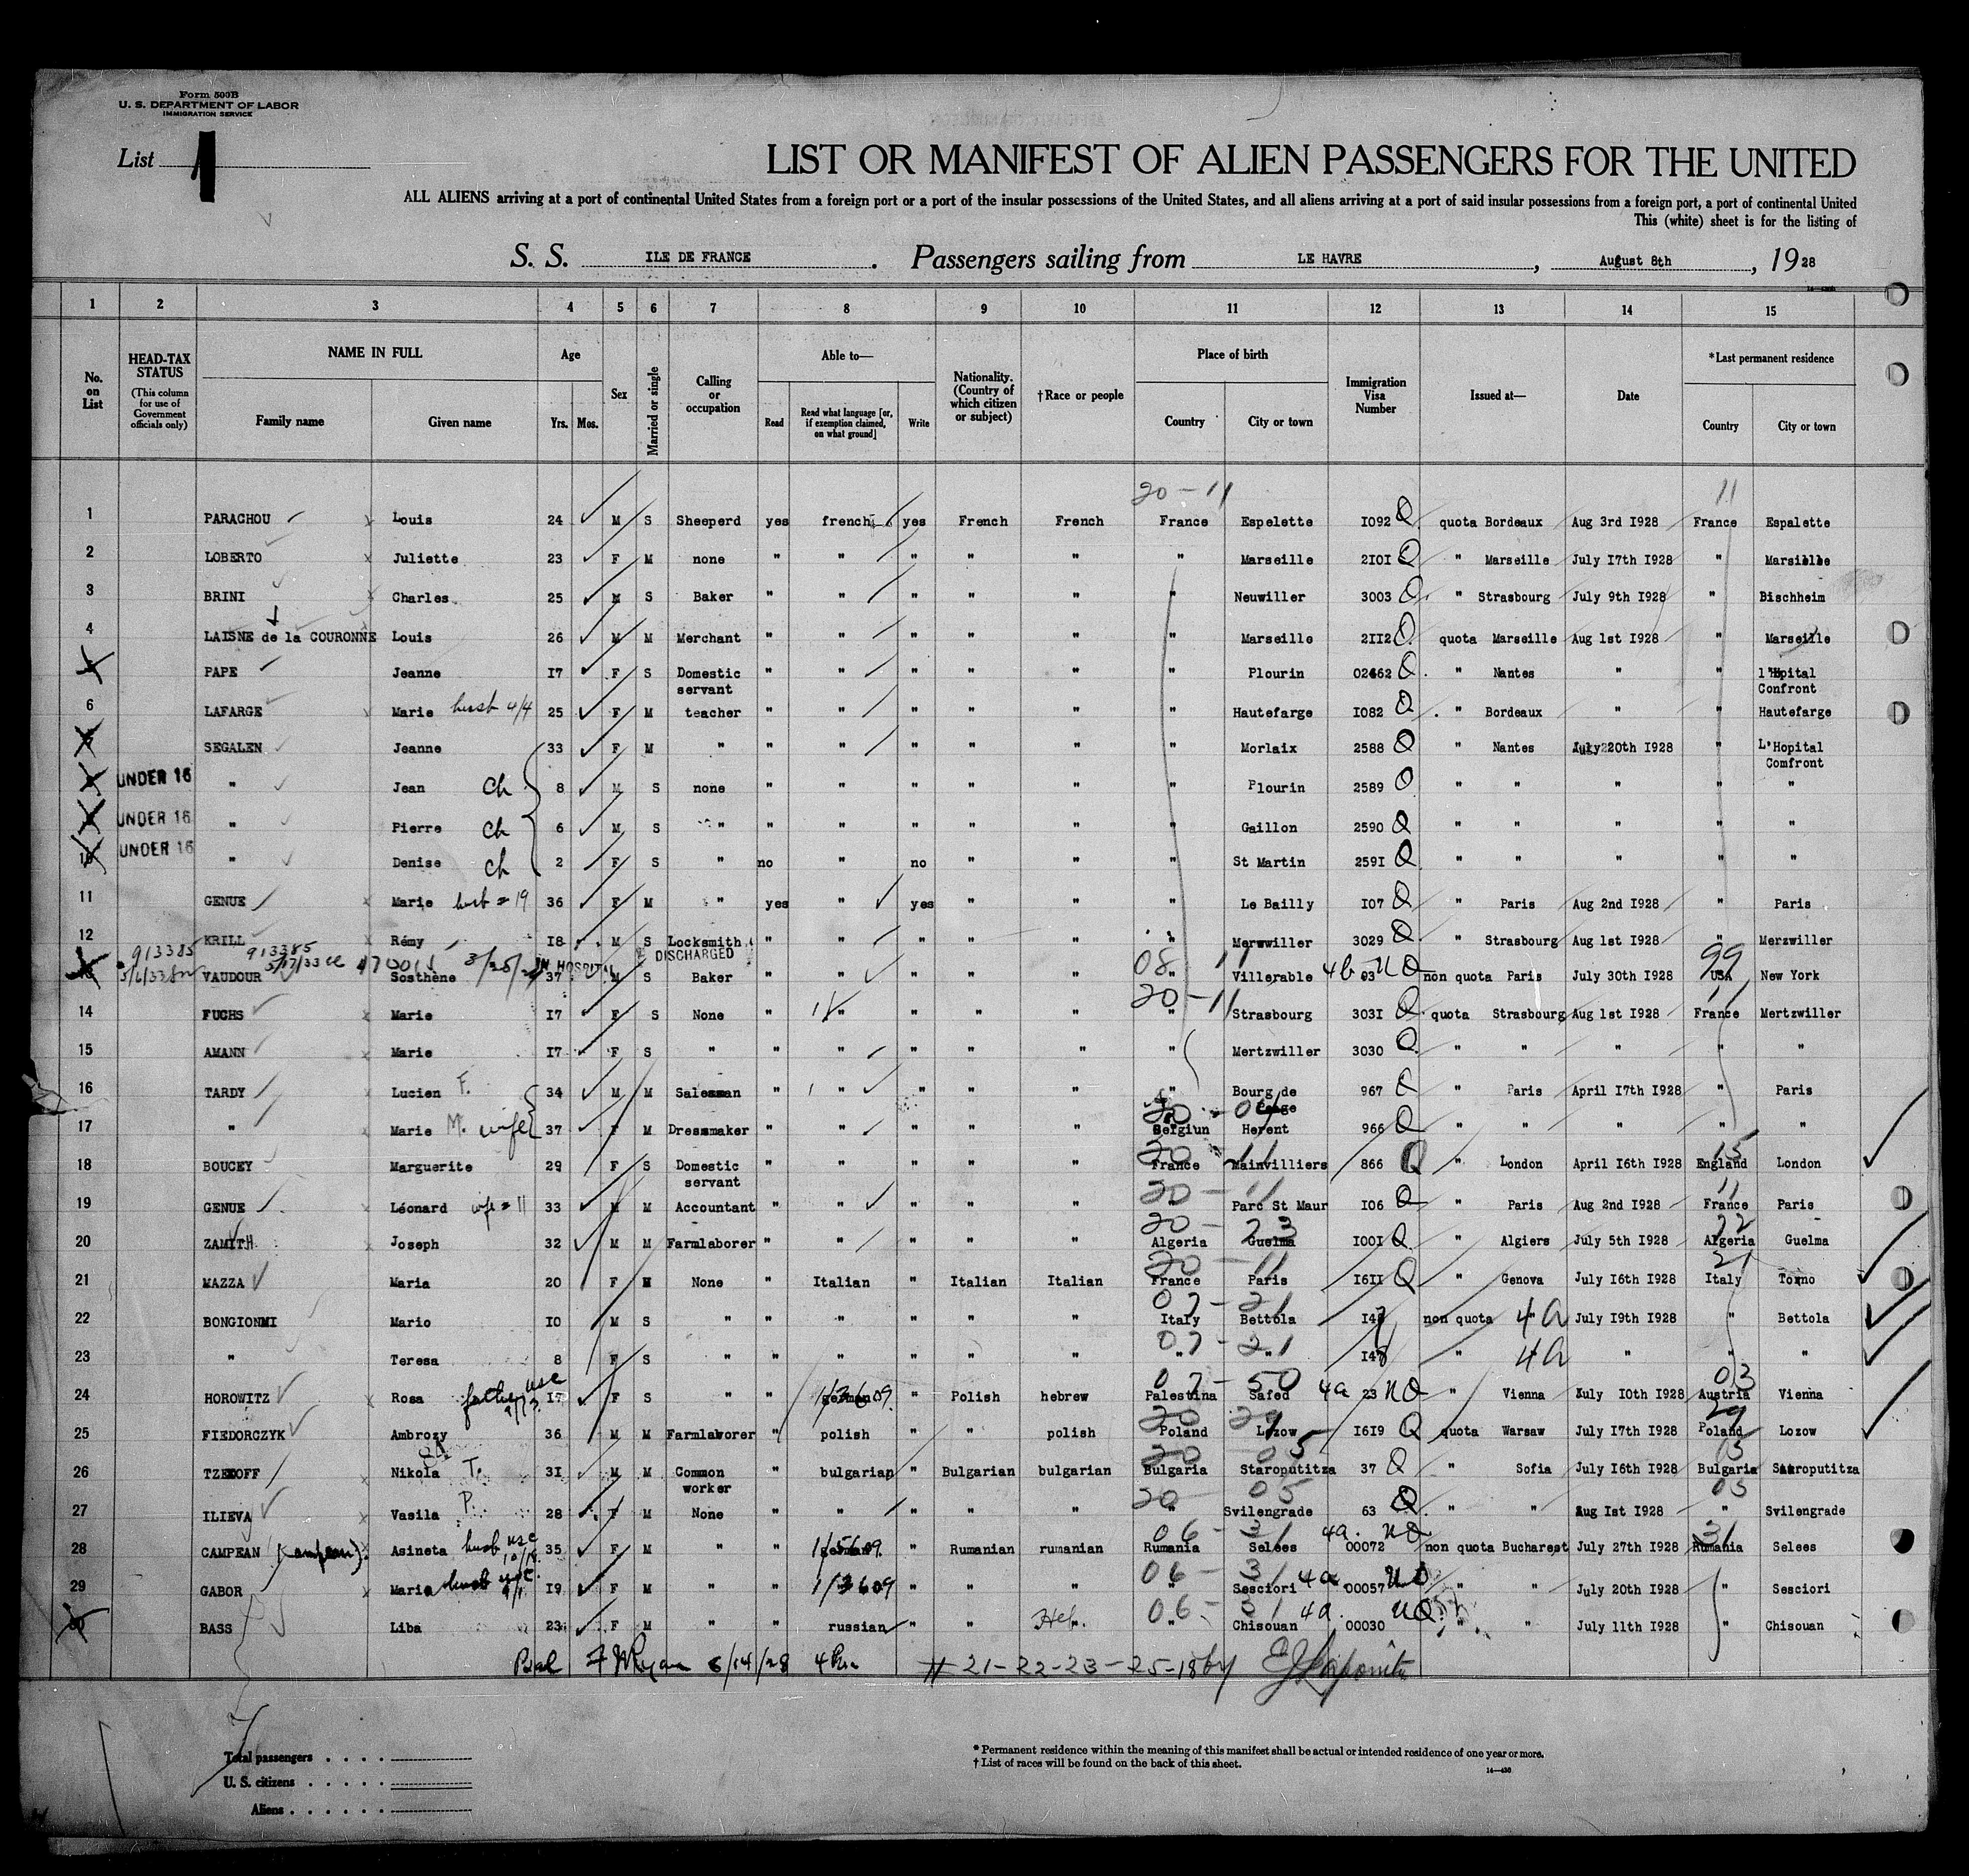 Form 500B
U. S. DEPARTMENT OF LABOR
IMMIGRATION SERVICE
List 1
LIST OR MANIFEST OF ALIEN PASSENGERS FOR THE UNITED
ALL ALIENS arriving at a port of continental United States from a foreign port or a port of the insular possessions of the United States, and all aliens arriving at a port of said insular possessions from a foreign port, a port of continental United
This (white) sheet is for the listing of
S. S. ILE DE FRANCE. Passengers sailing from LE HAVRE, August 8th, 1928
1 2 3 4 5 6 7 8 9 10 11 12 13 14 15
No. on List
HEAD-TAX STATUS (This column for use of Government officials only)
NAME IN FULL Family name Given name
Age Yrs. Mos.
Sex
Married or single
Calling or occupation
Able to— Read Read what language [or, if exemption claimed, on what ground] Write
Nationality. (Country of which citizen or subject)
†Race or people
Place of birth Country City or town
Immigration Visa Number
Issued at—
Date
*Last permanent residence Country City or town
20-11 11
1 PARACHOU Louis 24 M S Sheeperd yes french yes French French France Espelette I092 Q quota Bordeaux Aug 3rd I928 France Espalette
2 LOBERTO Juliette 23 F M none " " " " " " Marseille 2I0I Q " Marseille July I7th I928 " Marsielle
3 BRINI Charles 25 M S Baker " " " " " " Neuwiller 3003 Q " Strasbourg July 9th I928 " Bischheim
4 LAISNE de la COURONNE Louis 26 M M Merchant " " " " " " Marseille 2II2 Q quota Marseille Aug 1st I928 " Marseille
5 PAPE Jeanne I7 F S Domestic servant " " " " " " Plourin 02462 Q " Nantes " " l'Hpital Confront
6 LAFARGE Marie husb 4/4 25 F M teacher " " " " " " Hautefarge I082 Q " Bordeaux " " Hautefarge
7 SEGALEN Jeanne 33 F M " " " " " " " Morlaix 2588 Q " Nantes July 20th I928 " L'Hopital Comfront
8 UNDER 16 " Jean ch 8 M S none " " " " " " Plourin 2589 Q " " " " "
9 UNDER 16 " Pierre ch 6 M S " " " " " " " Gaillon 2590 Q " " " " "
10 UNDER 16 " Denise ch 2 F S " no " no " " " St Martin 259I Q " " " " "
11 GENUE Marie husb = 19 36 F M " yes " yes " " " Le Bailly I07 Q " Paris Aug 2nd I928 " Paris
12 KRILL Rémy I8 M S Locksmith " " " " " " Merwwiller 3029 Q " Strasbourg Aug 1st I928 " Merzwiller
913385 913385 IN HOSPITAL DISCHARGED 08 11 99
13 VAUDOUR Sosthène 37 M S Baker " " " " " " Villerable 4b 93 NQ non quota Paris July 30th I928 USA New York
20-11 11
14 FUCHS Marie I7 F S None " " " " " " Strasbourg 303I Q quota Strasbourg Aug 1st I928 France Mertzwiller
15 AMANN Marie I7 F S " " " " " " " Mertzwiller 3030 Q " " " " "
16 TARDY Lucien F. 34 M M Salesman " " " " " " Bourg de Péage 967 Q " Paris April I7th I928 " Paris
17 " Marie M. wife 37 F M Dressmaker " " " " " Belgiun Herent 966 Q " " " " "
20-11 15
18 BOUCEY Marguerite 29 F S Domestic servant " " " " " France Mainvilliers 866 Q " London April I6th I928 England London
20-11 11
19 GENUE Léonard wife = 11 33 M M Accountant " " " " " " Parc St Maur I06 Q " Paris Aug 2nd I928 France Paris
20-23 22
20 ZAMITH Joseph 32 M M Farmlaborer " " " " " Algeria Guelma I00I Q " Algiers July 5th I928 Algeria Guelma
20-11 21
21 MAZZA Maria 20 F M None " Italian " Italian Italian France Paris I6II Q " Genova July I6th I928 Italy Torno
07-21
22 BONGIONMI Mario I0 M S " " " " " " Italy Bettola I47 non quota " 4a July I9th I928 " Bettola
07-21
23 " Teresa 8 F S " " " " " " " " I48 " 4a " " "
07-50 03
24 HOROWITZ Rosa father usc I7 F S " " german " Polish hebrew Palestina Safed 4a 23 NQ " Vienna July I0th I928 Austria Vienna
20 29 29
25 FIEDORCZYK Ambrozy 36 M M Farmlaworer " polish " " polish Poland Lozow I6I9 Q quota Warsaw July I7th I928 Poland Lozow
20 05 05
26 TZEKOFF Nikola T. 3I M M Common worker " bulgarian " Bulgarian bulgarian Bulgaria Staroputitza 37 Q " Sofia July I6th I928 Bulgaria Staroputitza
20 05 05
27 ILIEVA Vasila P. 28 F M None " " " " " " Svilengrade 63 Q " " Aug Ist I928 " Svilengrade
06-31 31
28 CAMPEAN (Campean) Asineta husb usc 35 F M " " german " Rumanian rumanian Rumania Selees 4a. 00072 NQ non quota Bucharest July 27th I928 Rumania Selees
06-31
29 GABOR Maria husb usc I9 F M " " " " " " Sesciori 4a 00057 NQ " " July 20th I928 " Sesciori
06-31
30 BASS Liba 23 F M " " russian " " Heb. " Chisouan 4a. 00030 NQ " " July 11th I928 " Chisouan
# 21-22-23-25-18 by
Total passengers
U. S. citizens
Aliens
* Permanent residence within the meaning of this manifest shall be actual or intended residence of one year or more.
† List of races will be found on the back of this sheet.